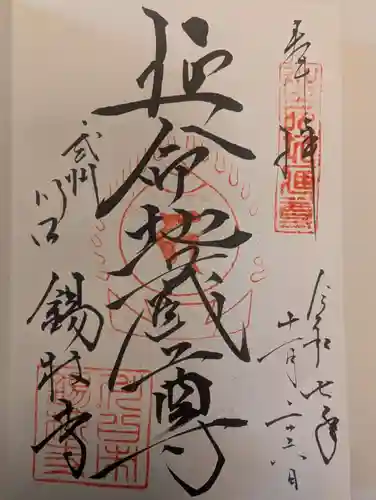 奉拝
令和七年
十一月二十六日
延命地蔵尊
武州
川口
錫杖寺